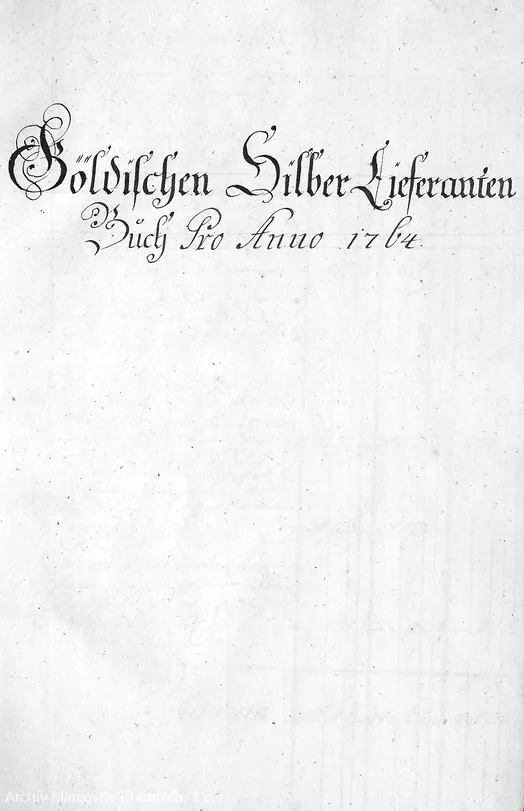 Göldischen Silber Lieferanten
Buch Pro Anno 1764.
Archív Mincovne Kremnica, š.p.